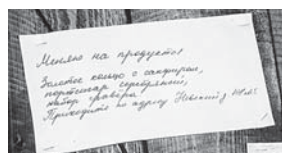 Меняю на продукты
Золотое кольцо с сапфиром,
портсигар серебряный,
набор гравёра
Приходите по адресу Невский